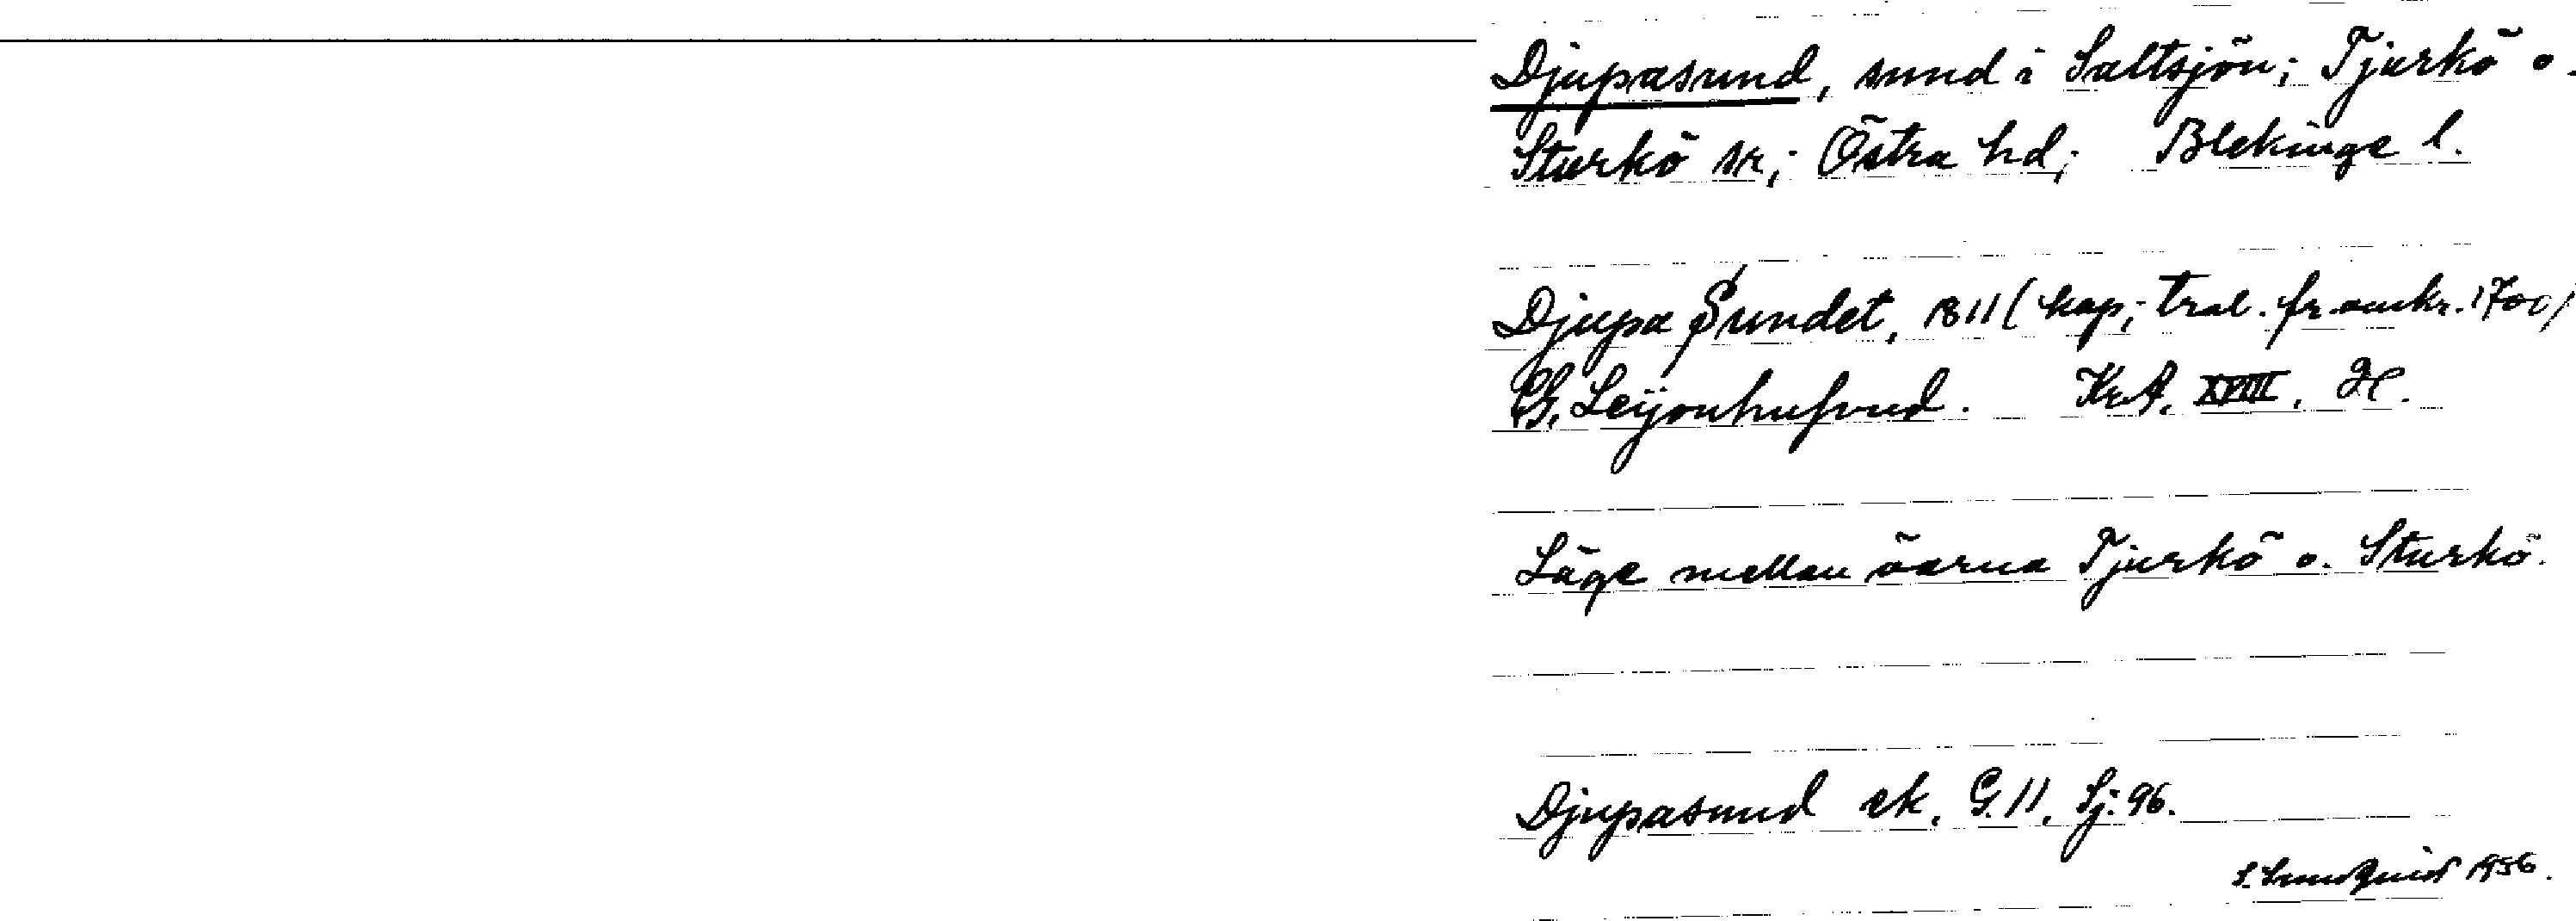 Djupasund, sund i Saltsjön; Tjurkö o.
Sturkö sn; Östra hd; Blekinge l.
Djupa Sundet, 1811 (kop; tral. fr. omkr. 1700)
G. Leijonhufvud. KrA. XVIII. 2c.
Läge mellan öarna Tjurkö o. Sturkö.
Djupasund ek. G.11. Sj: 96.
1956.